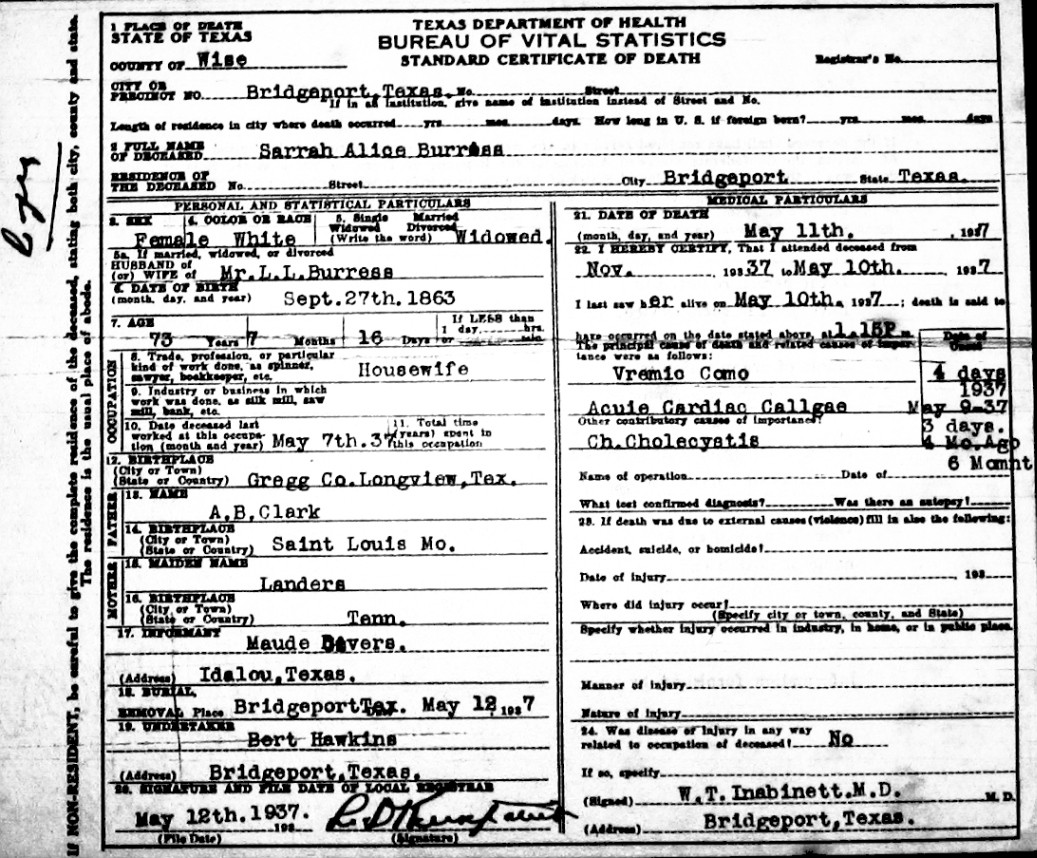 TEXAS DEPARTMENT OF HEALTH
BUREAU OF VITAL STATISTICS
STANDARD CERTIFICATE OF DEATH
1 PLACE OF DEATH
STATE OF TEXAS
COUNTY OF Wise
Registrar's No.
CITY OR PRECINCT NO. Bridgeport, Texas. No. Street
If in an institution, give name of institution instead of Street and No.
Length of residence in city where death occurred yrs mos. days. How long in U. S. if foreign born? yrs mos. days
2 FULL NAME OF DECEASED Sarrah Alice Burress
RESIDENCE OF THE DECEASED No. Street City Bridgeport State Texas.
PERSONAL AND STATISTICAL PARTICULARS
3. SEX Female
4. COLOR OR RACE White
5. Single Married Widowed Divorced (Write the word) Widowed.
5a. If married, widowed, or divorced
HUSBAND of (or) WIFE of Mr.L.L.Burress
6. DATE OF BIRTH (month, day, and year) Sept.27th.1863
7. AGE 73 Years 7 Months 16 Days If LESS than 1 day hrs. or min.
OCCUPATION
8. Trade, profession, or particular kind of work done, as spinner, sawyer, bookkeeper, etc. Housewife
9. Industry or business in which work was done, as silk mill, saw mill, bank, etc.
10. Date deceased last worked at this occupation (month and year) May 7th.37
11. Total time (years) spent in this occupation
12. BIRTHPLACE (City or Town) (State or Country) Gregg Co.Longview,Tex.
FATHER
13. NAME A,B,Clark
14. BIRTHPLACE (City or Town) (State or Country) Saint Louis Mo.
MOTHER
15. MAIDEN NAME Landers
16. BIRTHPLACE (City or Town) (State or Country) Tenn.
17. INFORMANT Maude
(Address) Idalou,Texas.
18. BURIAL, REMOVAL Place Bridgeport Tex. May 12, 1937
19. UNDERTAKER Bert Hawkins
(Address) Bridgeport,Texas.
20. SIGNATURE AND FILE DATE OF LOCAL REGISTRAR
May 12th.1937. 193
(File Date) (Signature)
MEDICAL PARTICULARS
21. DATE OF DEATH (month, day, and year) May 11th. , 1937
22. I HEREBY CERTIFY, That I attended deceased from
Nov. , 19337 to May 10th. , 1937
I last saw her alive on May 10th. 1937; death is said to
have occurred on the date stated above, at 1.15P m.
The principal cause of death and related causes of importance were as follows:
Date of Onset
Vremic Como 4 days
1937
Acuie Cardiac Callgae May 9-37
Other contributory causes of importance: 3 days.
Ch.Cholecystis 4 Mo.Ago
6 Momht
Name of operation Date of
What test confirmed diagnosis? Was there an autopsy?
23. If death was due to external causes (violence) fill in also the following:
Accident, suicide, or homicide?
Date of injury , 193
Where did injury occur?
(Specify city or town, county, and State)
Specify whether injury occurred in industry, in home, or in public place.
Manner of injury
Nature of injury
24. Was disease or injury in any way related to occupation of deceased? No
If so, specify
(Signed) W.T.Inabinett.M.D. M. D.
(Address) Bridgeport,Texas.
If NON-RESIDENT, be careful to give the complete residence of the deceased, stating both city, county and state.
The residence is the usual place of abode.